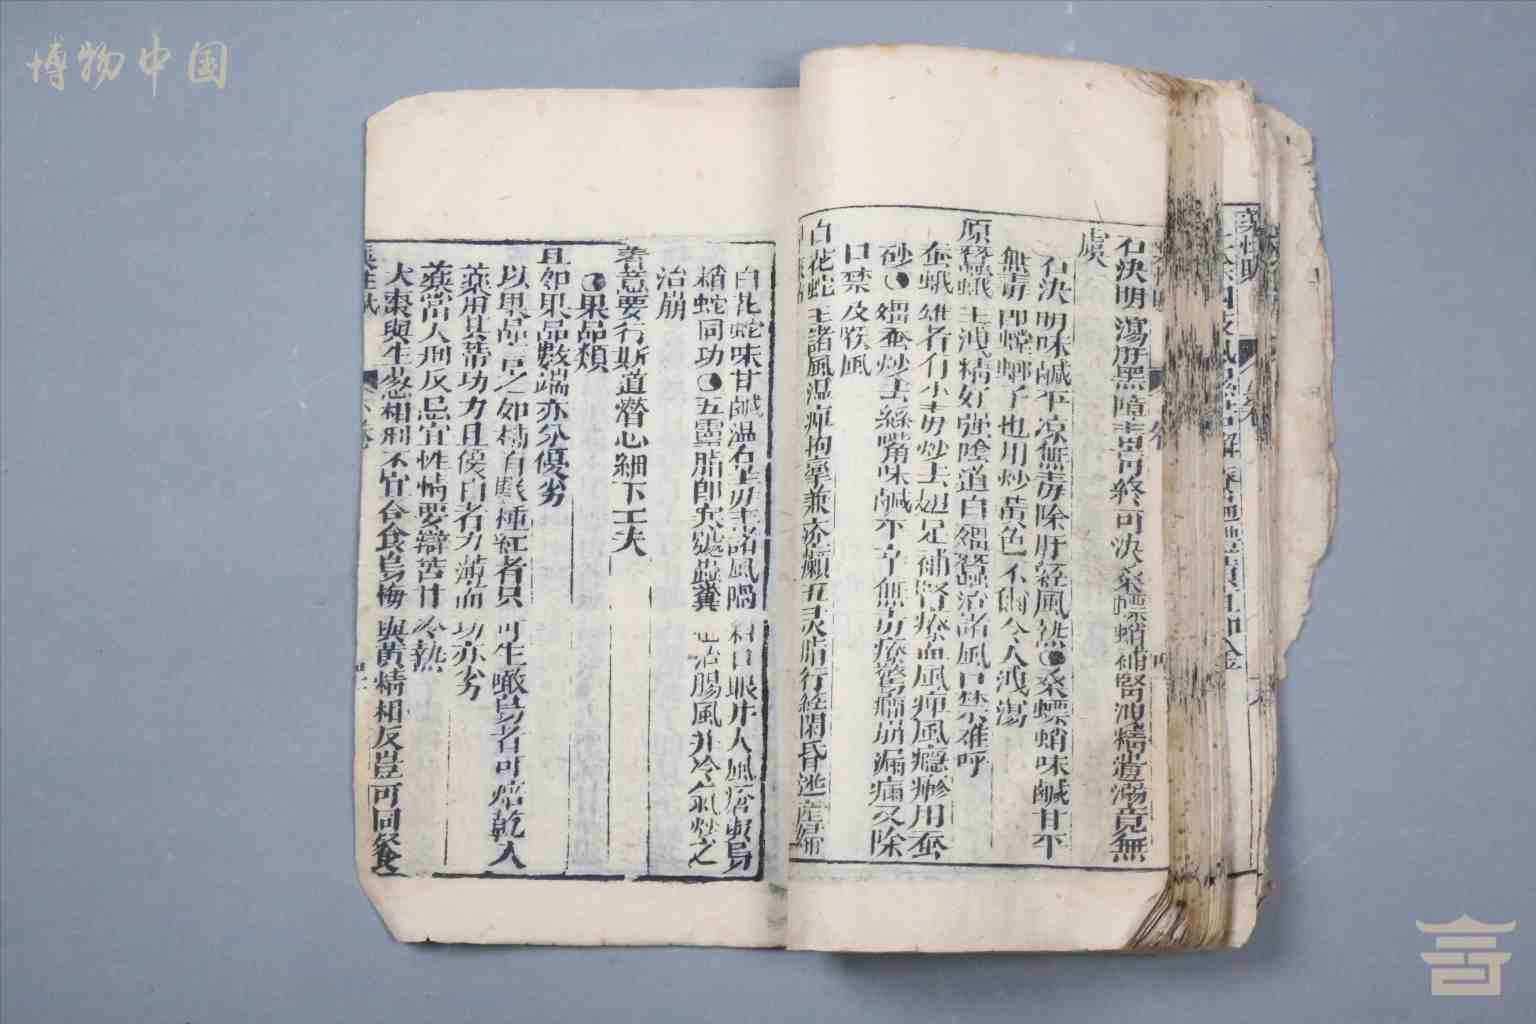 博物中国
石決明瀉肝黑障青盲終可決桑螵蛸補腎洩精遺溺竟無
虞
石決明味鹹平涼無毒除肝經風热桑螵蛸味鹹甘平
無毒即螳螂子也用炒黃色不爾令人洩瀉
原蠶蛾主洩精好強陰道白殭蠶治諸風口禁难呼
蚕蛾雄者有小毒炒去翅足補腎療血風痺風癮瘮用蚕
砂殭蚕炒去絲嘴味鹹平辛無毒療驚癇崩漏痛又除
口禁及喉風
白花蛇主諸風湿痺拘攣兼疥癩五灵脂行經閉昏迷產婦
白花蛇味甘鹹温有毒主諸風喎斜口眼并大風瘡癩烏
稍蛇同功五靈脂即寒號蟲糞治腸風并冷氣炒之
治崩
着意要行斯道潛心細下工夫
果品類
且如果品數端亦分優劣
以果品言之如橘有數種紅者只可生噉烏者可焙乾入
藥用其蒂功力且優白者力薄而功亦劣
藥當人刑反忌宜性情要辯苦甘冷熱
大棗與生葱相刑不宜合食烏梅與黃精相反豈可同餐